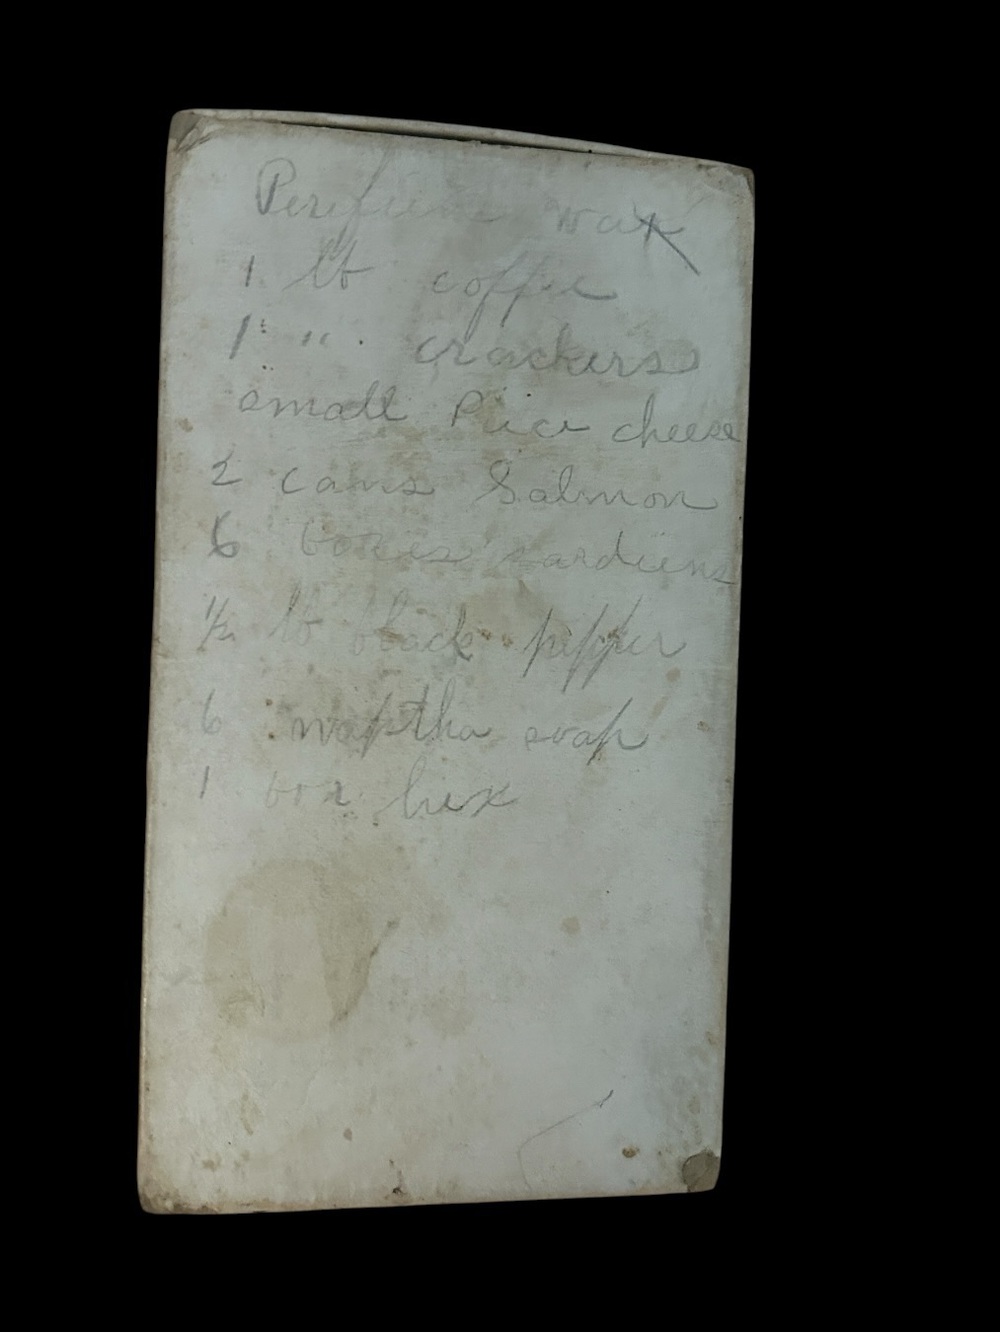 Perifiene wax
1 lb coffee
1 " crackers
small Piice cheese
2 cans Salmon
6 boxes sardiens
1/2 lb black pepper
6 naptha soap
1 box lux